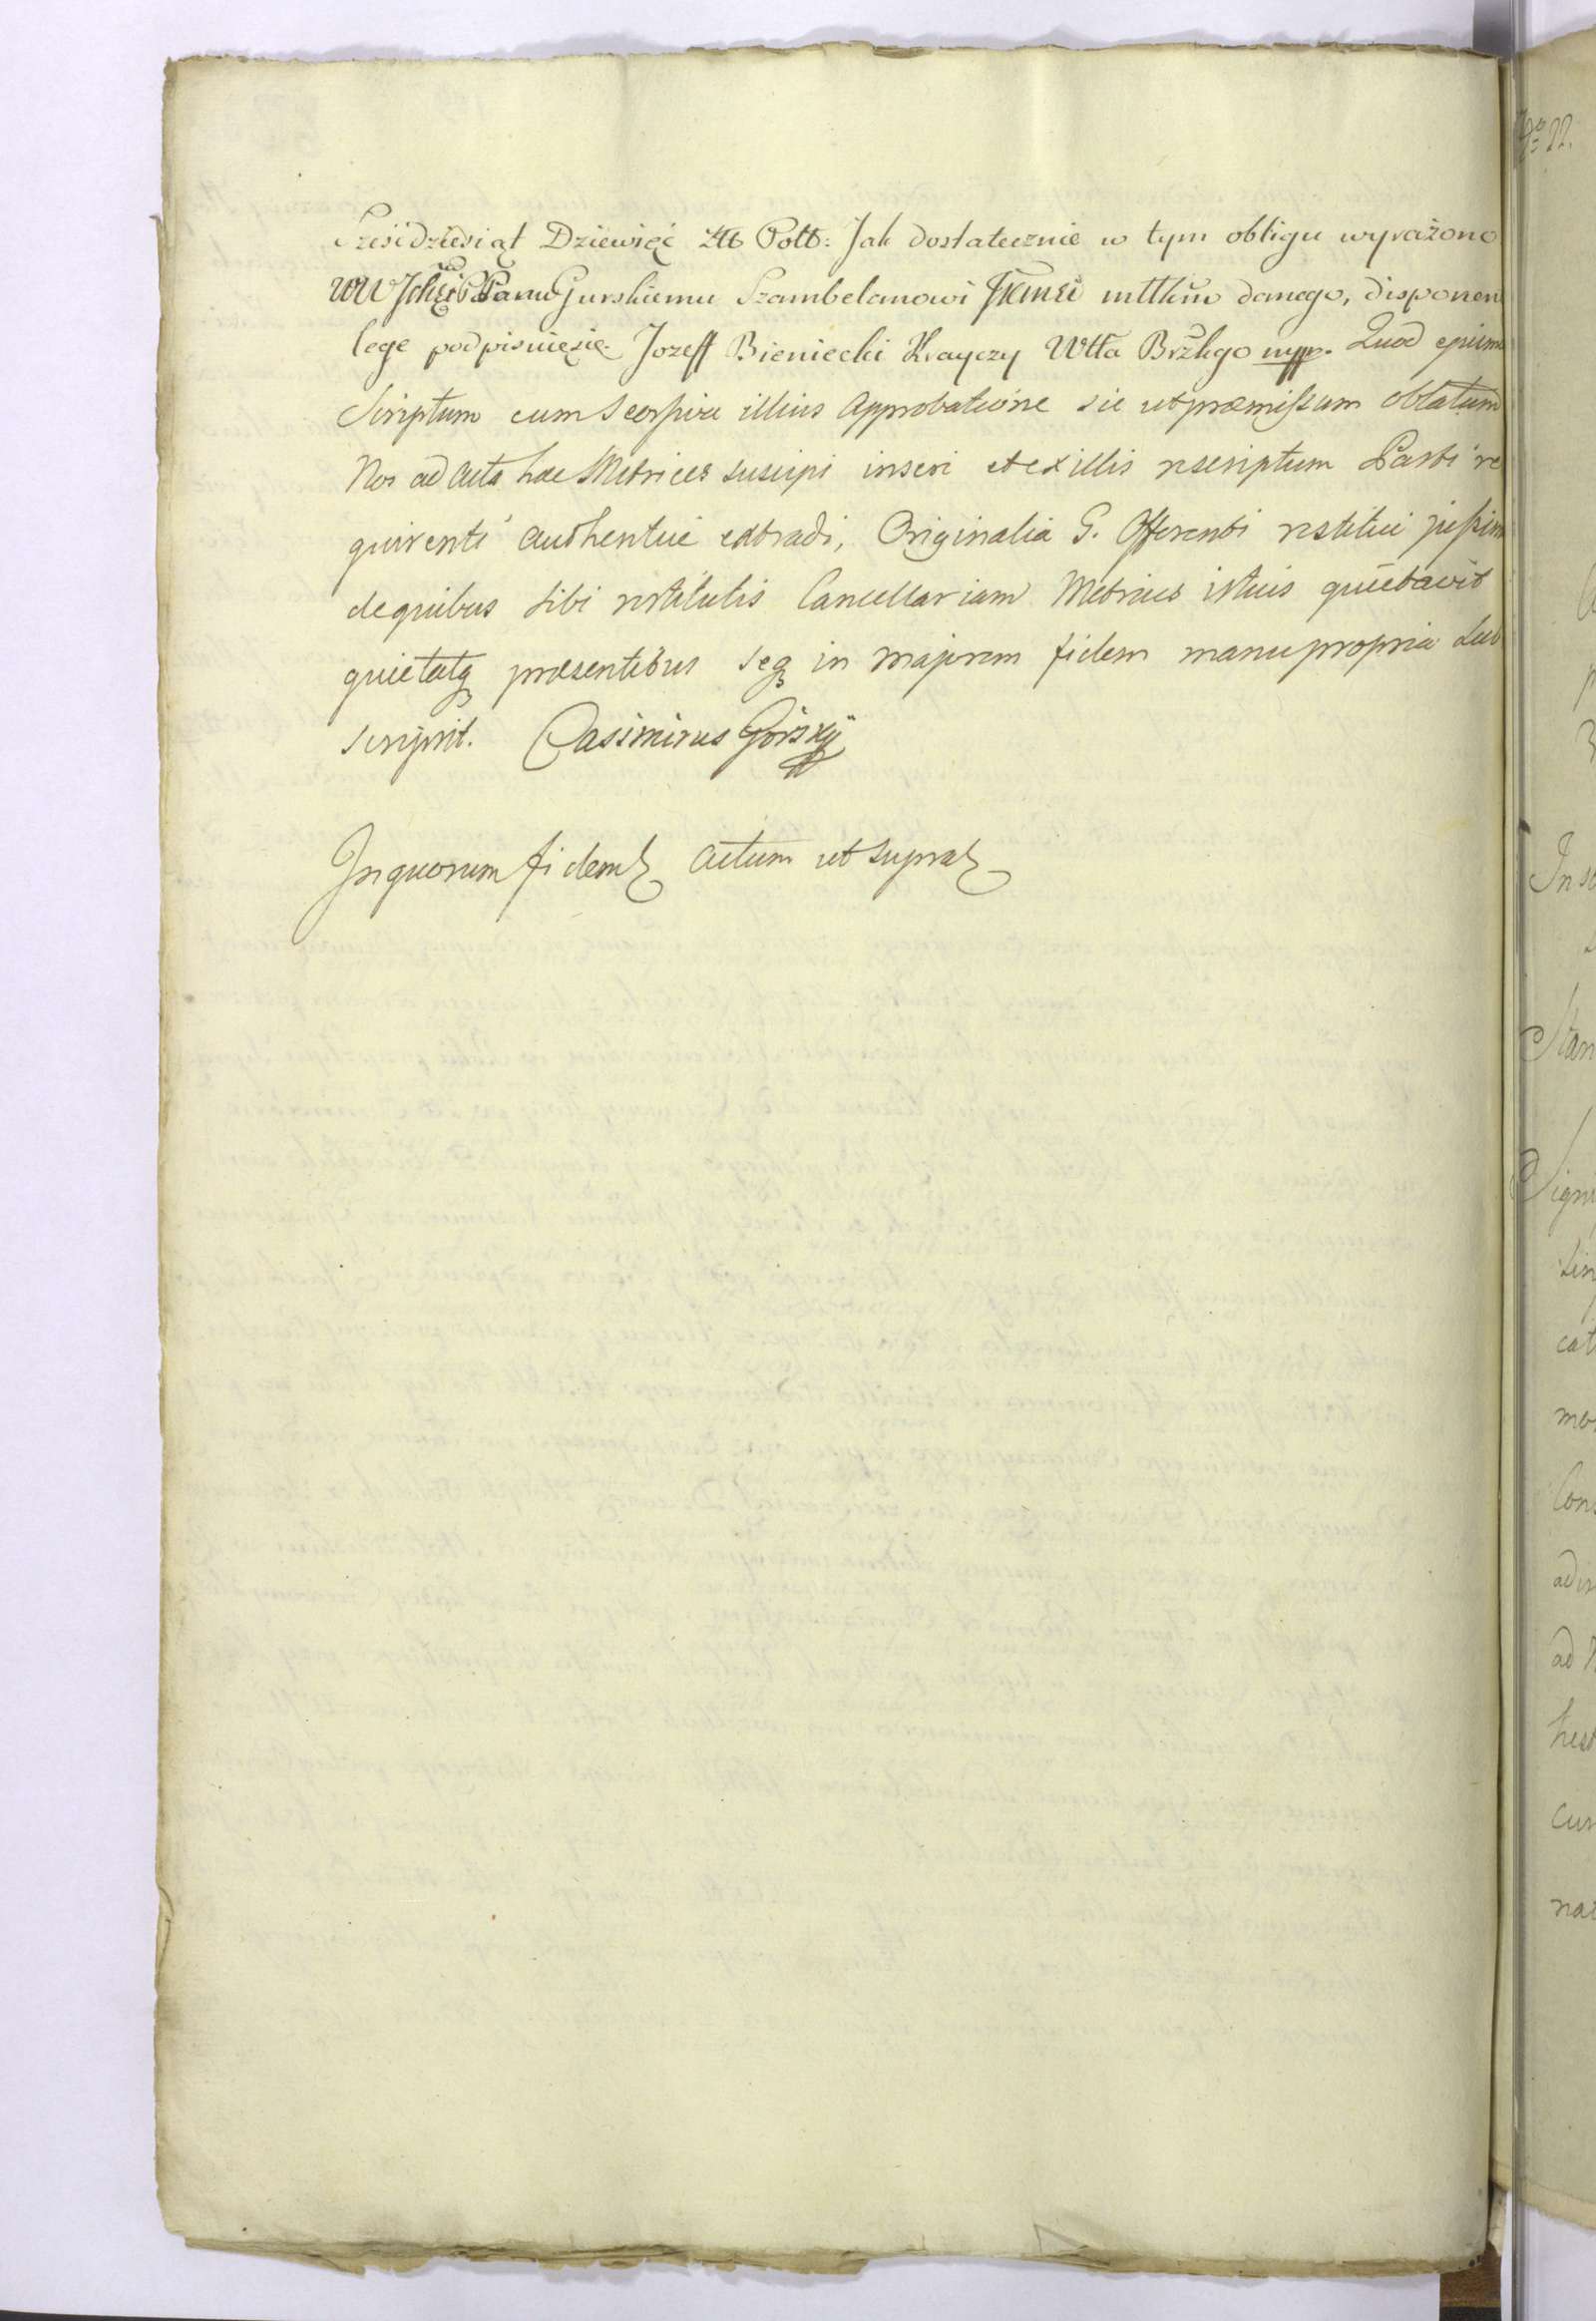 Sześcdziesiąt Dziewięć Złt Polt: Jak dostatecznie w tym obligu wyrażono
WW Panu Gurskiemu Szambelanowi danego, disponen
lege podpisuięsię. Jozeff Bieniecki Krayczy Wttа Brzłgo mpp. Quod
Scriptum cum Scorsiva illius Approbatione sic ut præmissum oblatum
Nos ad Acta hæc Metrices suscipi inseri et ex illis rescriptum Parti re
quirenti authentice extradi, Originalia G. Offerenti restitui jussim
de quibus sibi restitutis Cancellariam Metrices istius quietavit
quietatq præsentibus seq in majorem fidem manu propria sub
scripsit. Casimirus Górskÿ
In quorum fidem Actum ut supra
No 22.